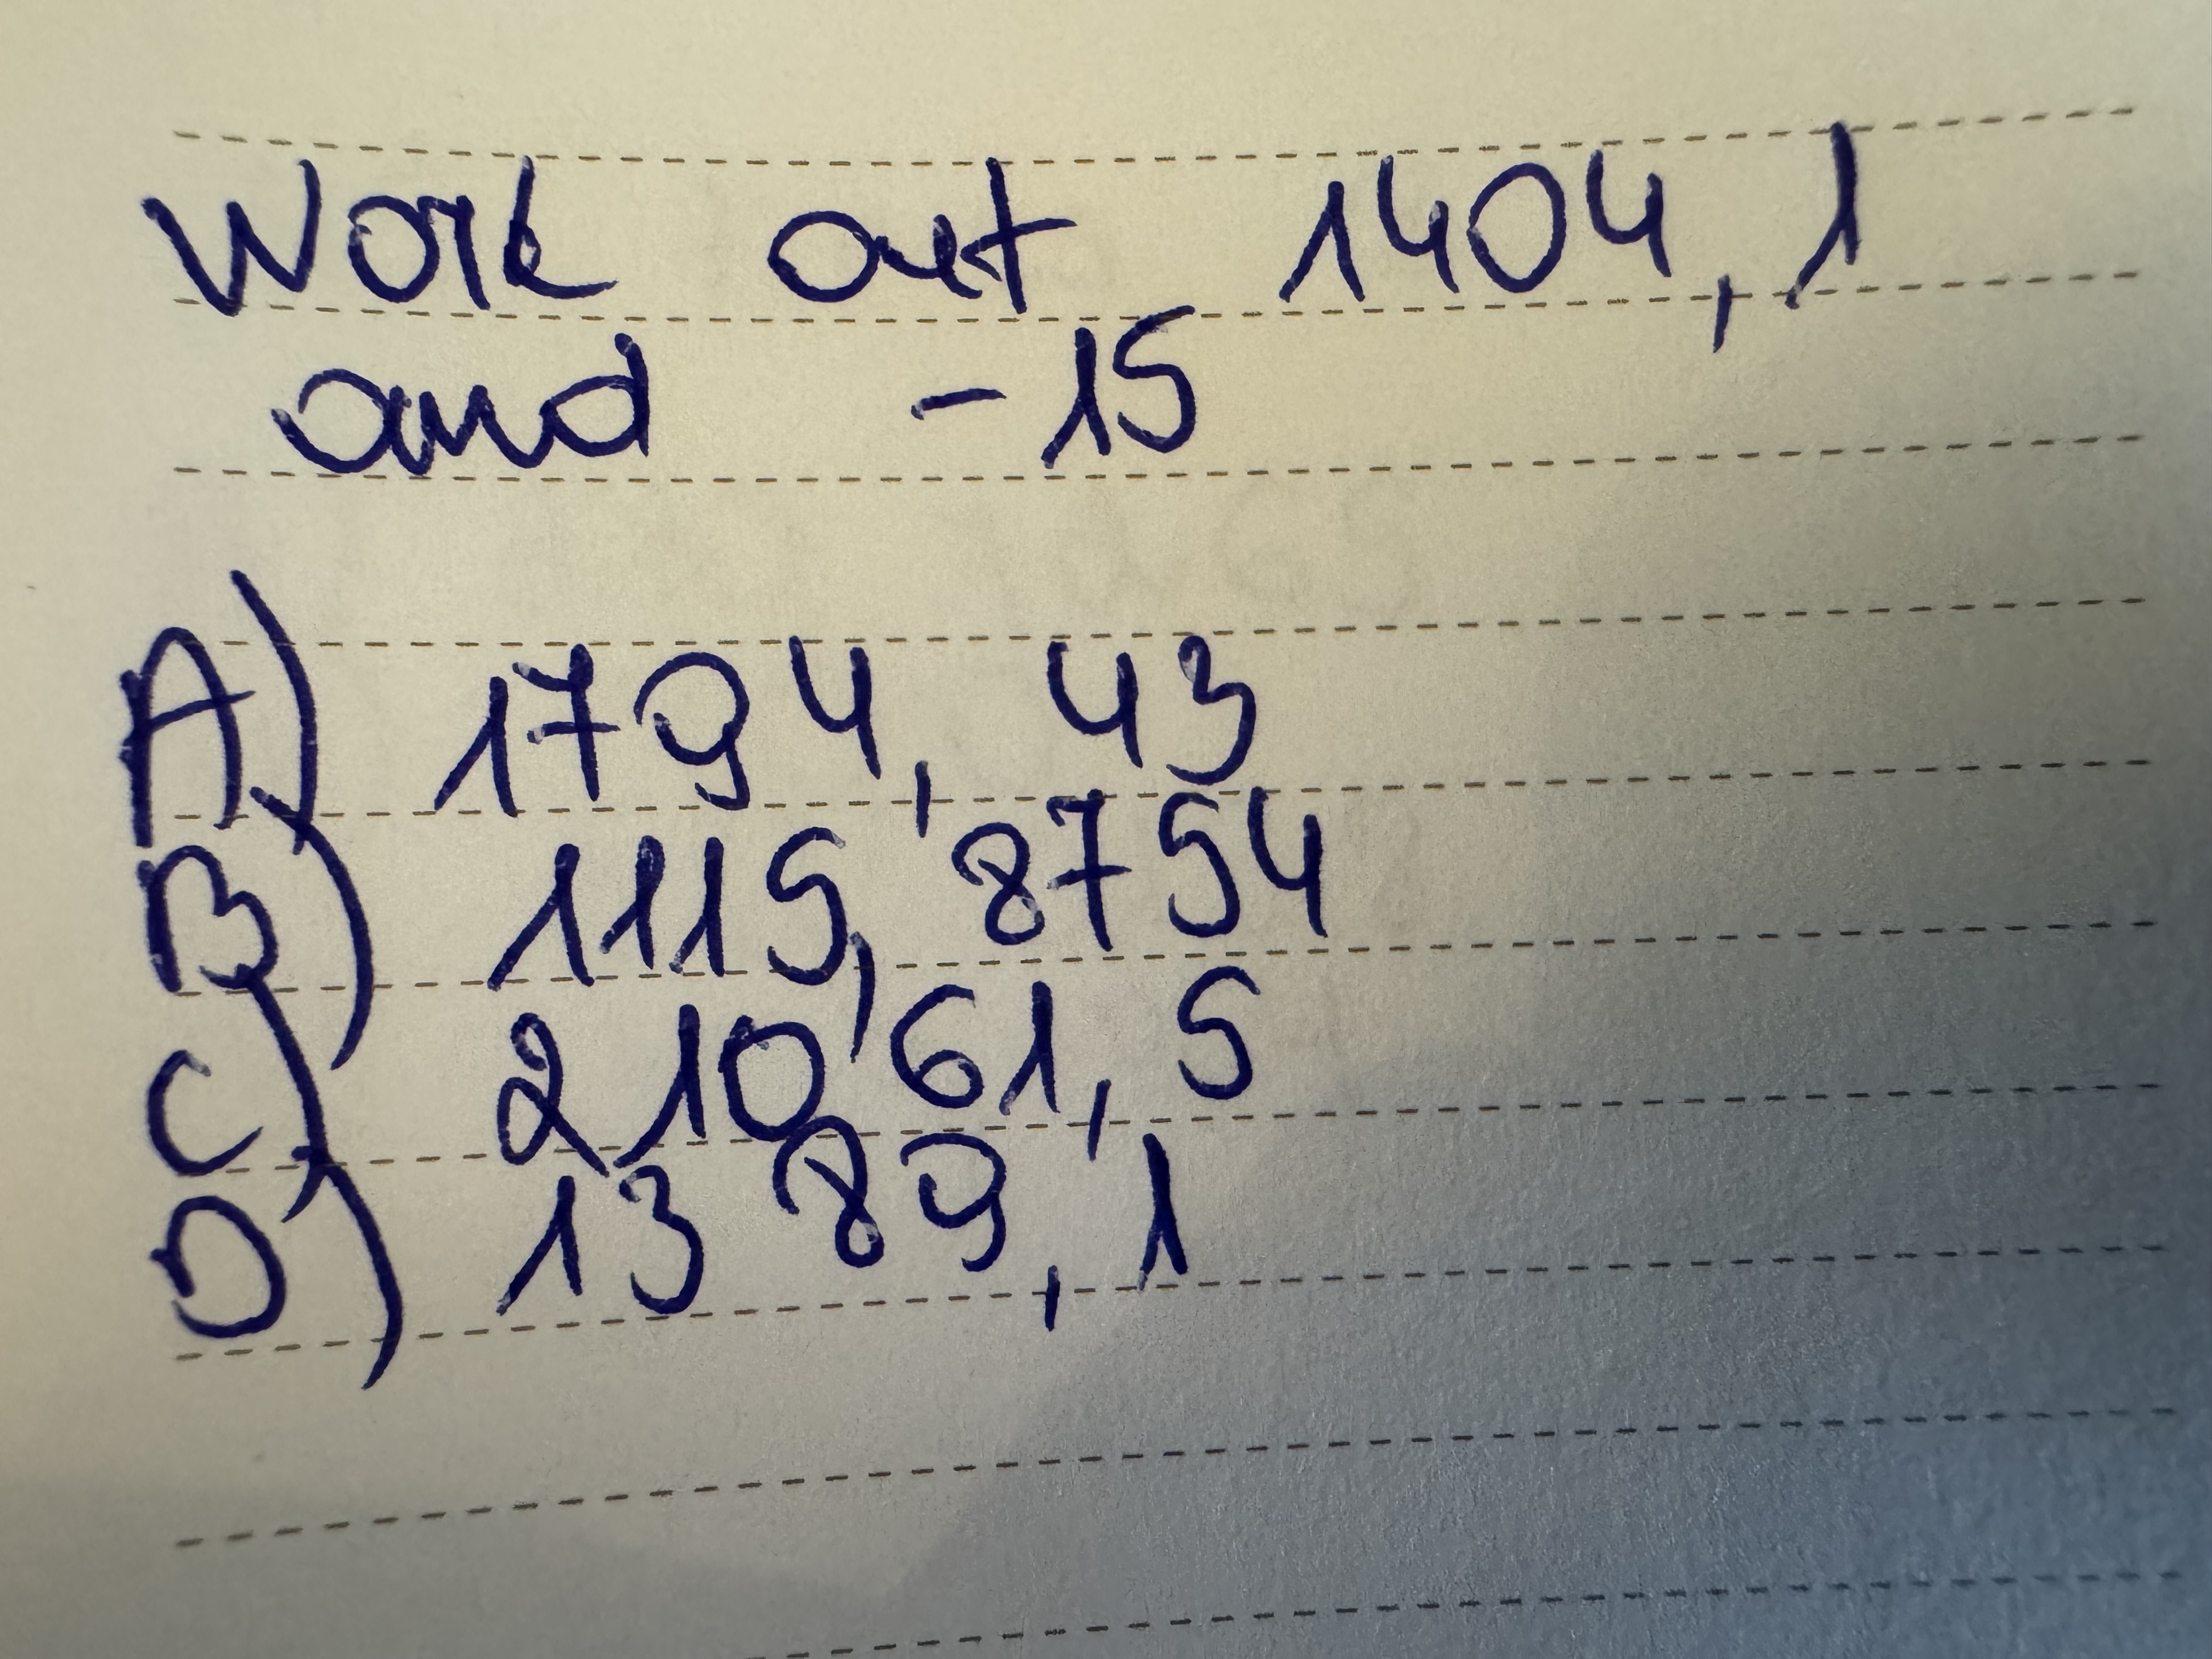 Work out 1404,1
and -15
A) 1794, 43
B) 1115, 8754
C) 21061, 5
D) 1389, 1